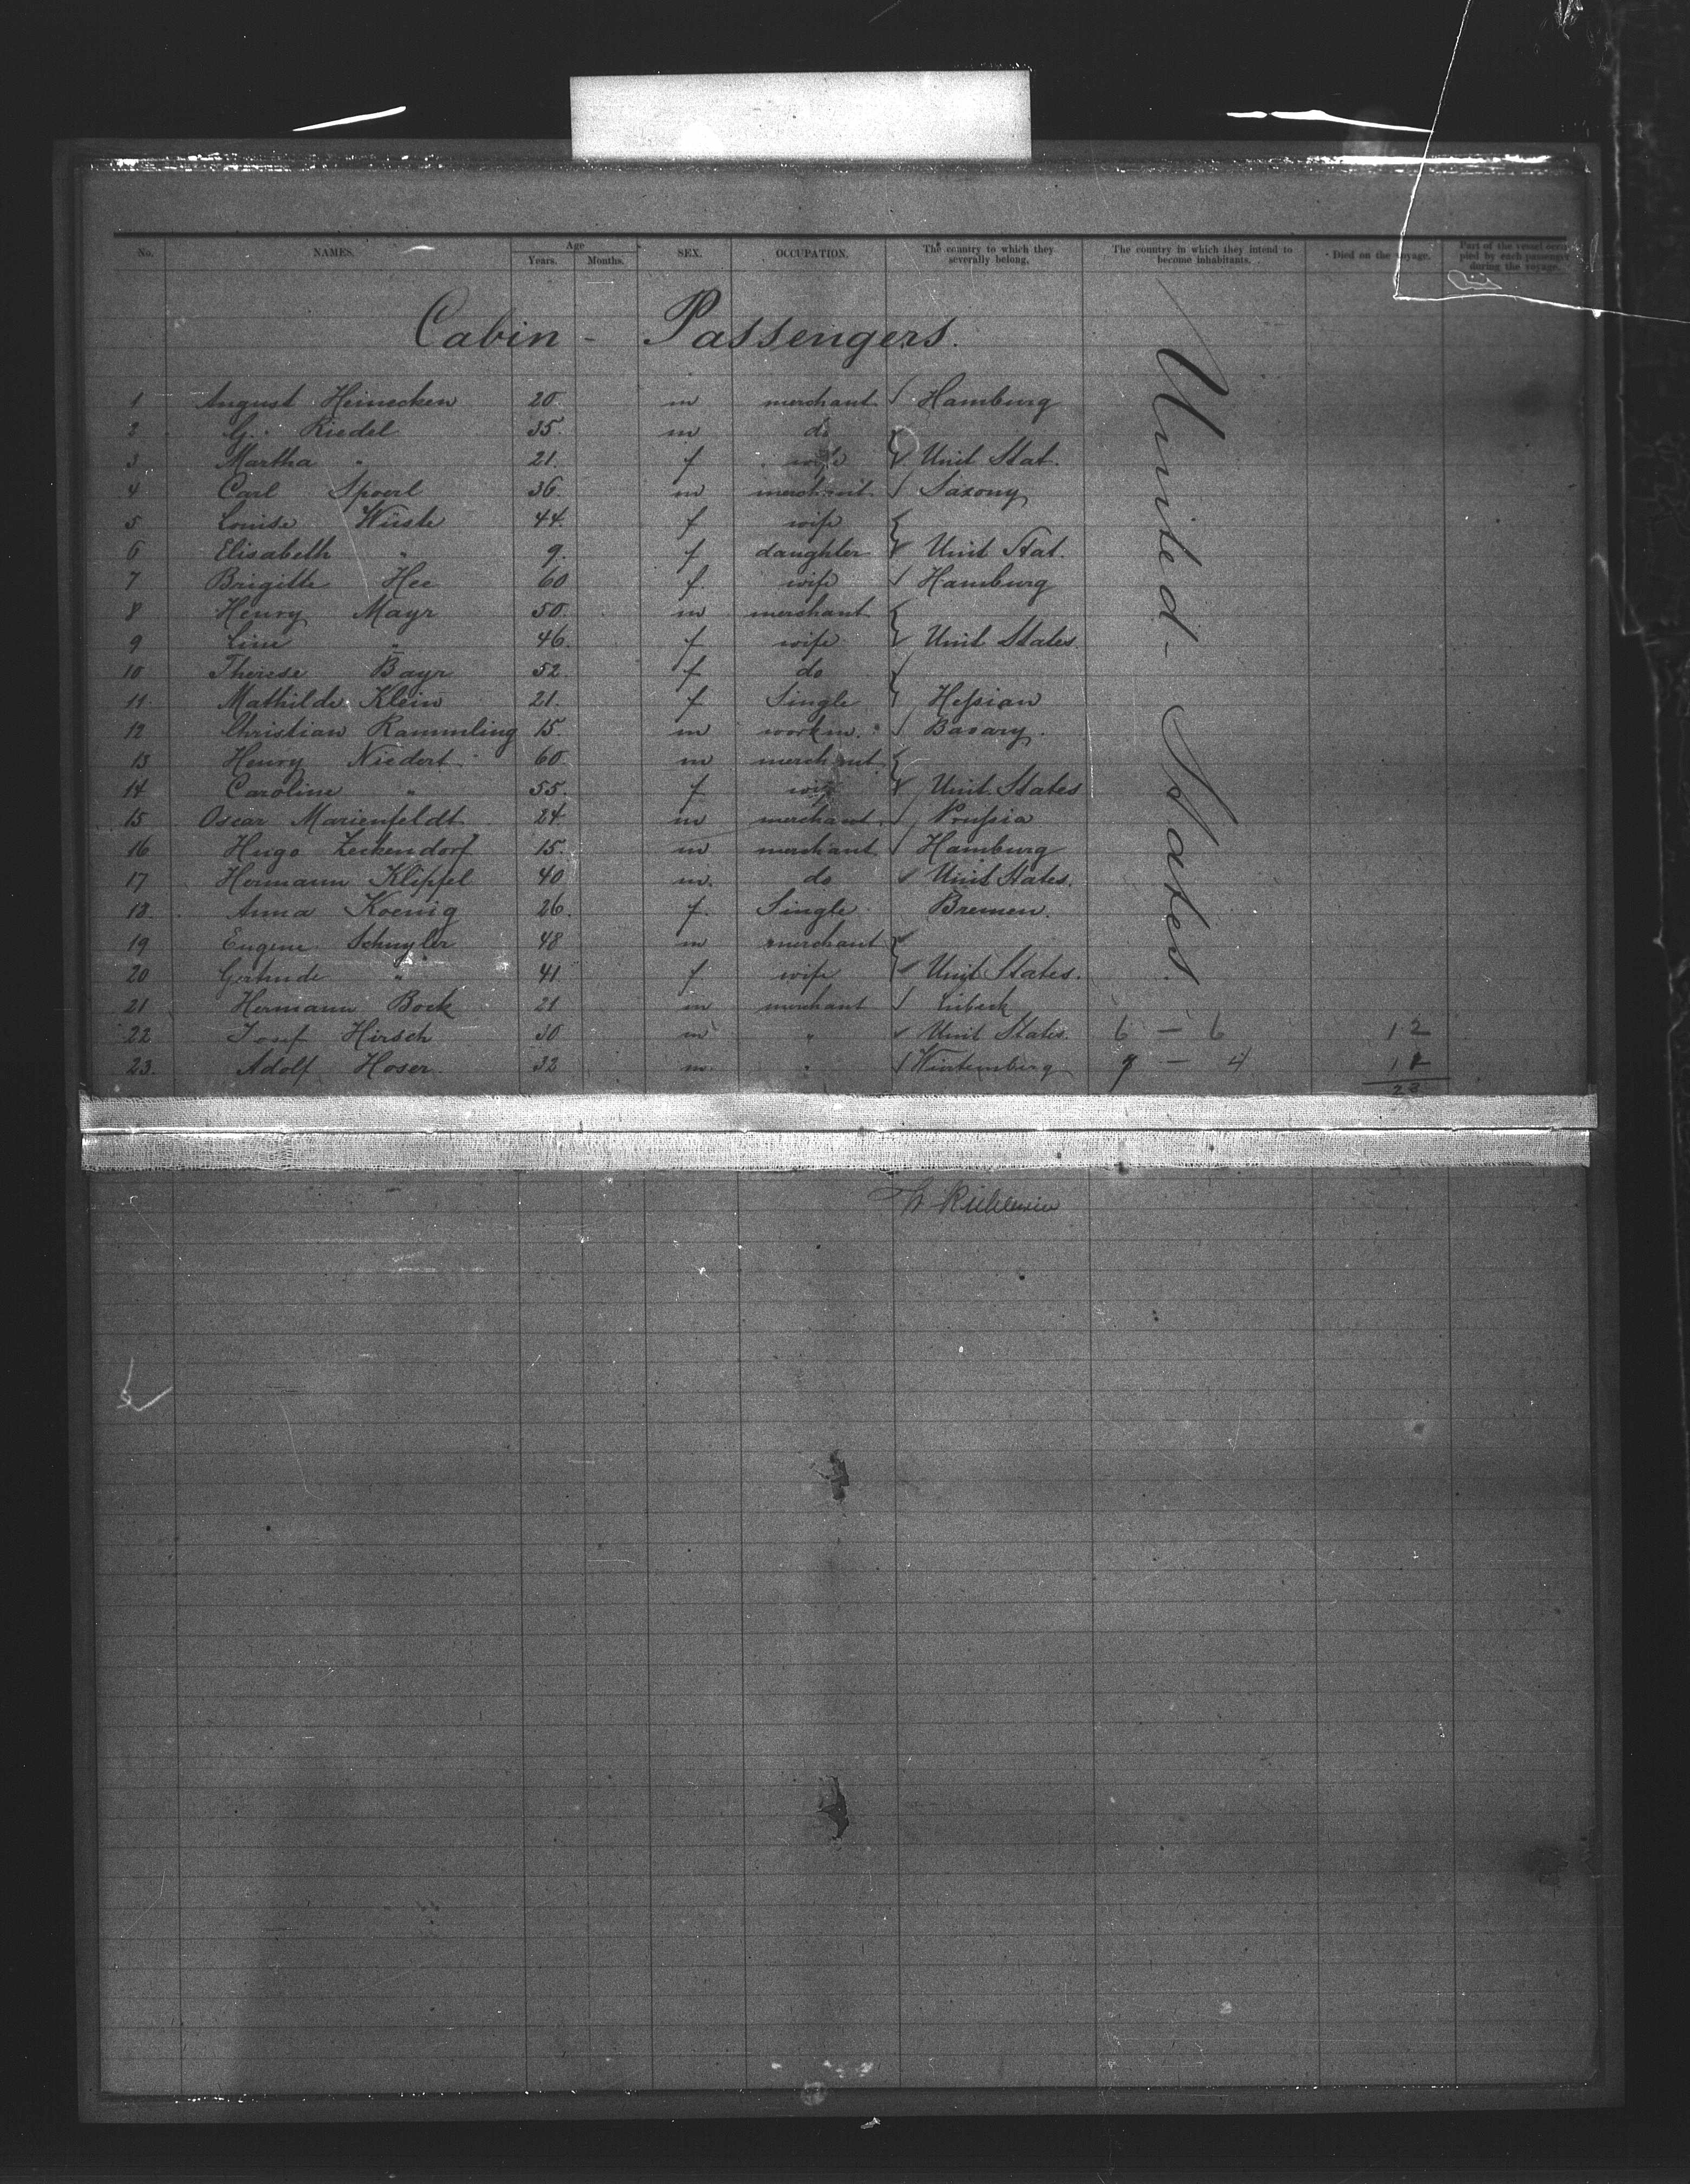 No. NAMES. Age Years. Months. SEX. OCCUPATION. The country to which they severally belong. The country in which they intend to become inhabitants. Died on the voyage. Part of the vessel occupied by each passenger during the voyage.
Cabin - Passengers.
United States.
1 August Heinecken 20. m merchant Hamburg
2 G. Riedel 35. m do
3 Martha " 21. f wife Unit Stat.
4 Carl Spoerl 36. m merchant Saxony
5 Louise Wüste 44. f wife
6 Elisabeth " 9. f daughter Unit Stat.
7 Brigitte Hee 60 f wife Hamburg
8 Henry Mayr 50. m merchant
9 Line " 46. f wife Unit States.
10 Therese Bayr 52 f do
11 Mathilde Klein 21. f Single Hessian
12 Christian Rammling 15. m workm. Bavary.
13 Henry Niedert 60 m merchant
14 Caroline " 55. f wife Unit States
15 Oscar Marienfeldt 24 m merchant Prussia
16 Hugo Zeckendorf 15. m merchant Hamburg
17 Hermann Klipfel 40 m. do Unit States.
18 Anna Koenig 26. f. Single Bremen.
19 Eugene Schuyler 48 m merchant
20 Gertrude " 41. f wife Unit States.
21 Hermann Bock 21 m merchant Lübeck
22 Josef Hirsch 30 m " Unit States. 6 — 6 12
23. Adolf Hoser 32 m. " Würtemberg 7 — 4 11
23